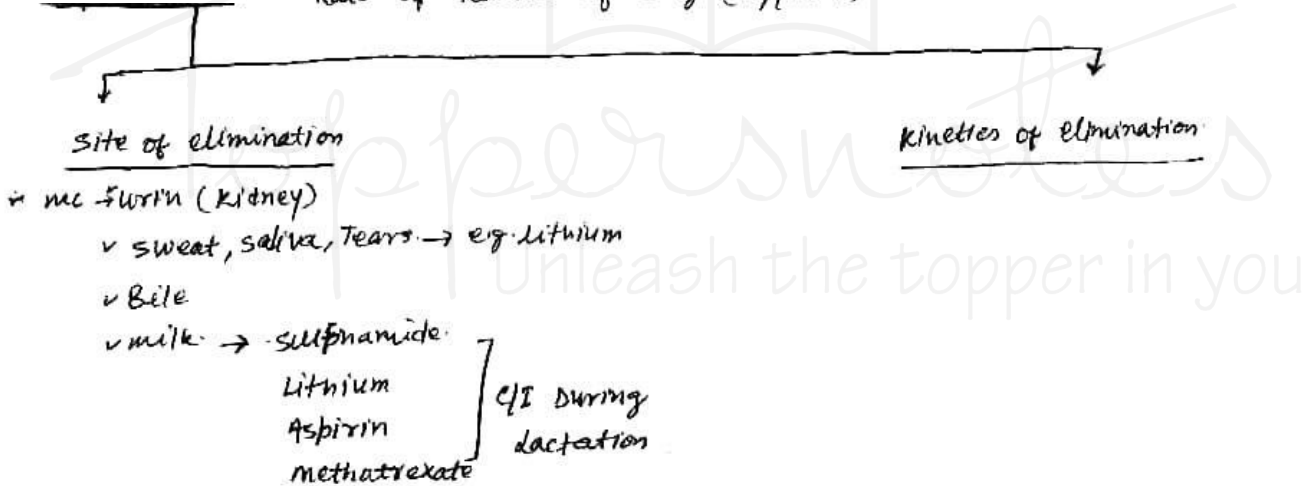 Site of elimination
Kinetics of elimination
mc → urin (kidney)
✓ sweat, saliva, Tears → e.g. Lithium
✓ Bile
✓ milk → sulphamide
Lithium
Aspirin
methatrexate
C/I During
Lactation
Toppersnotes
Unleash the topper in you